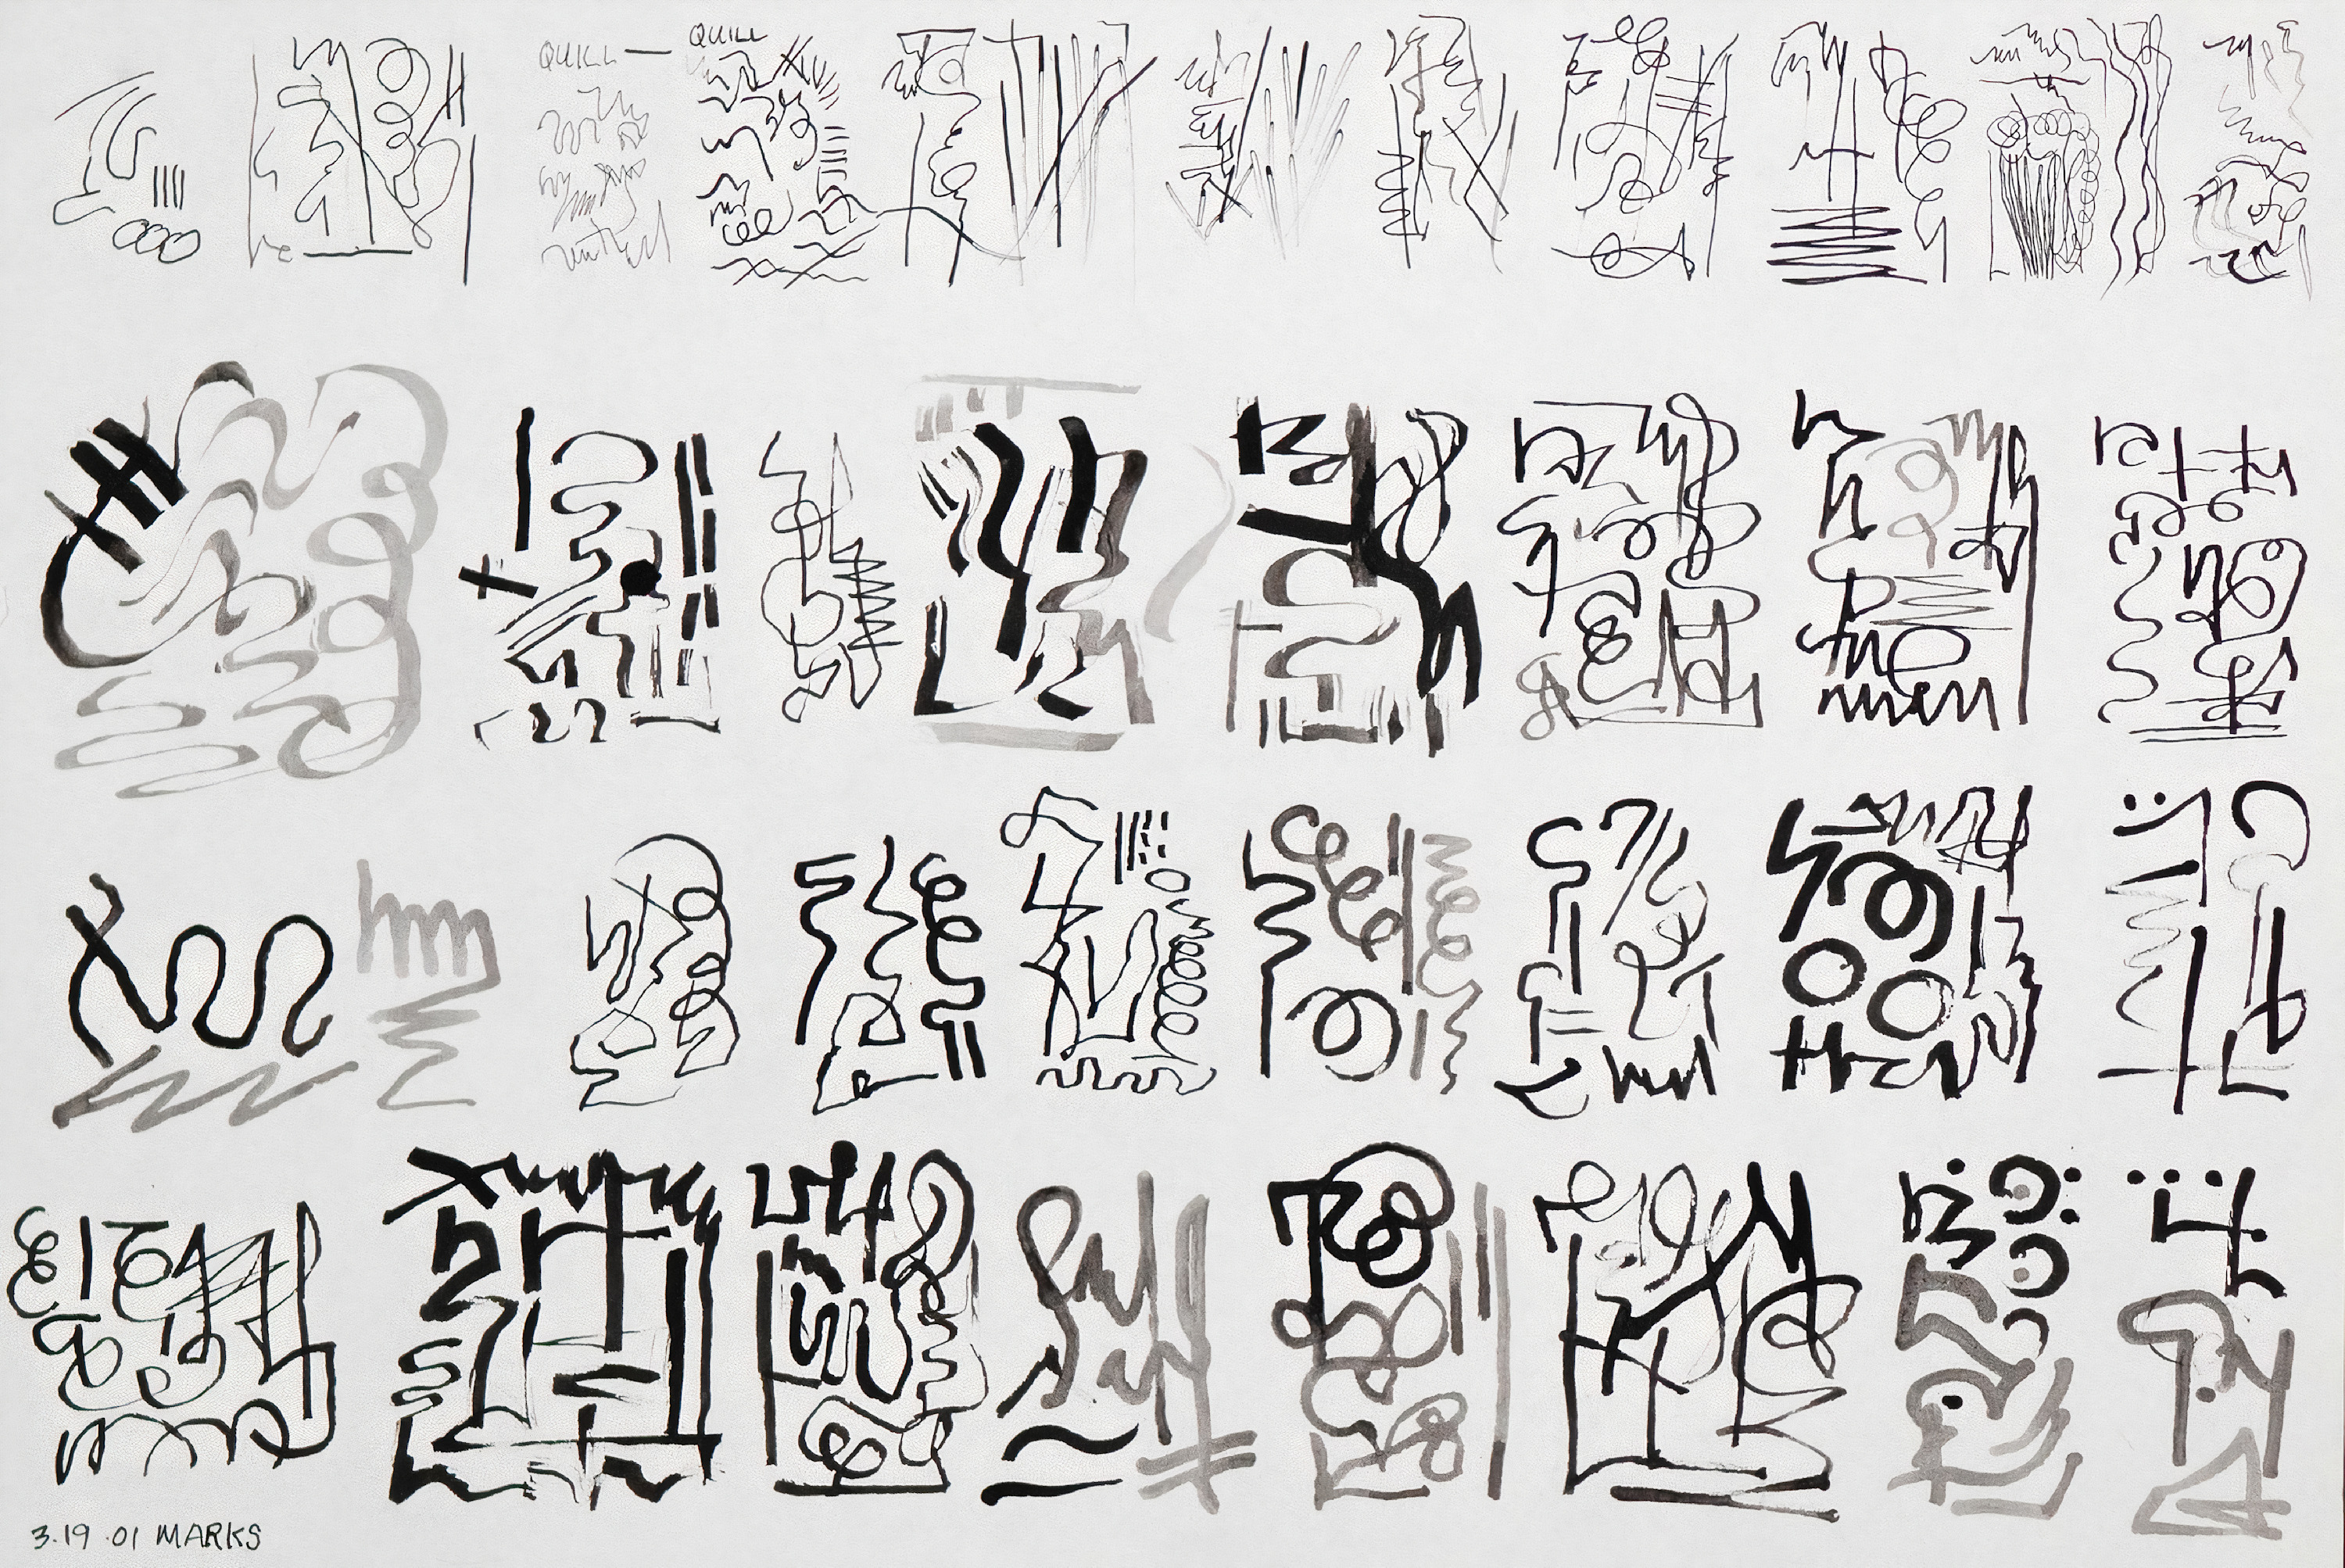 QUILL — QUILL
3.19.01 MARKS